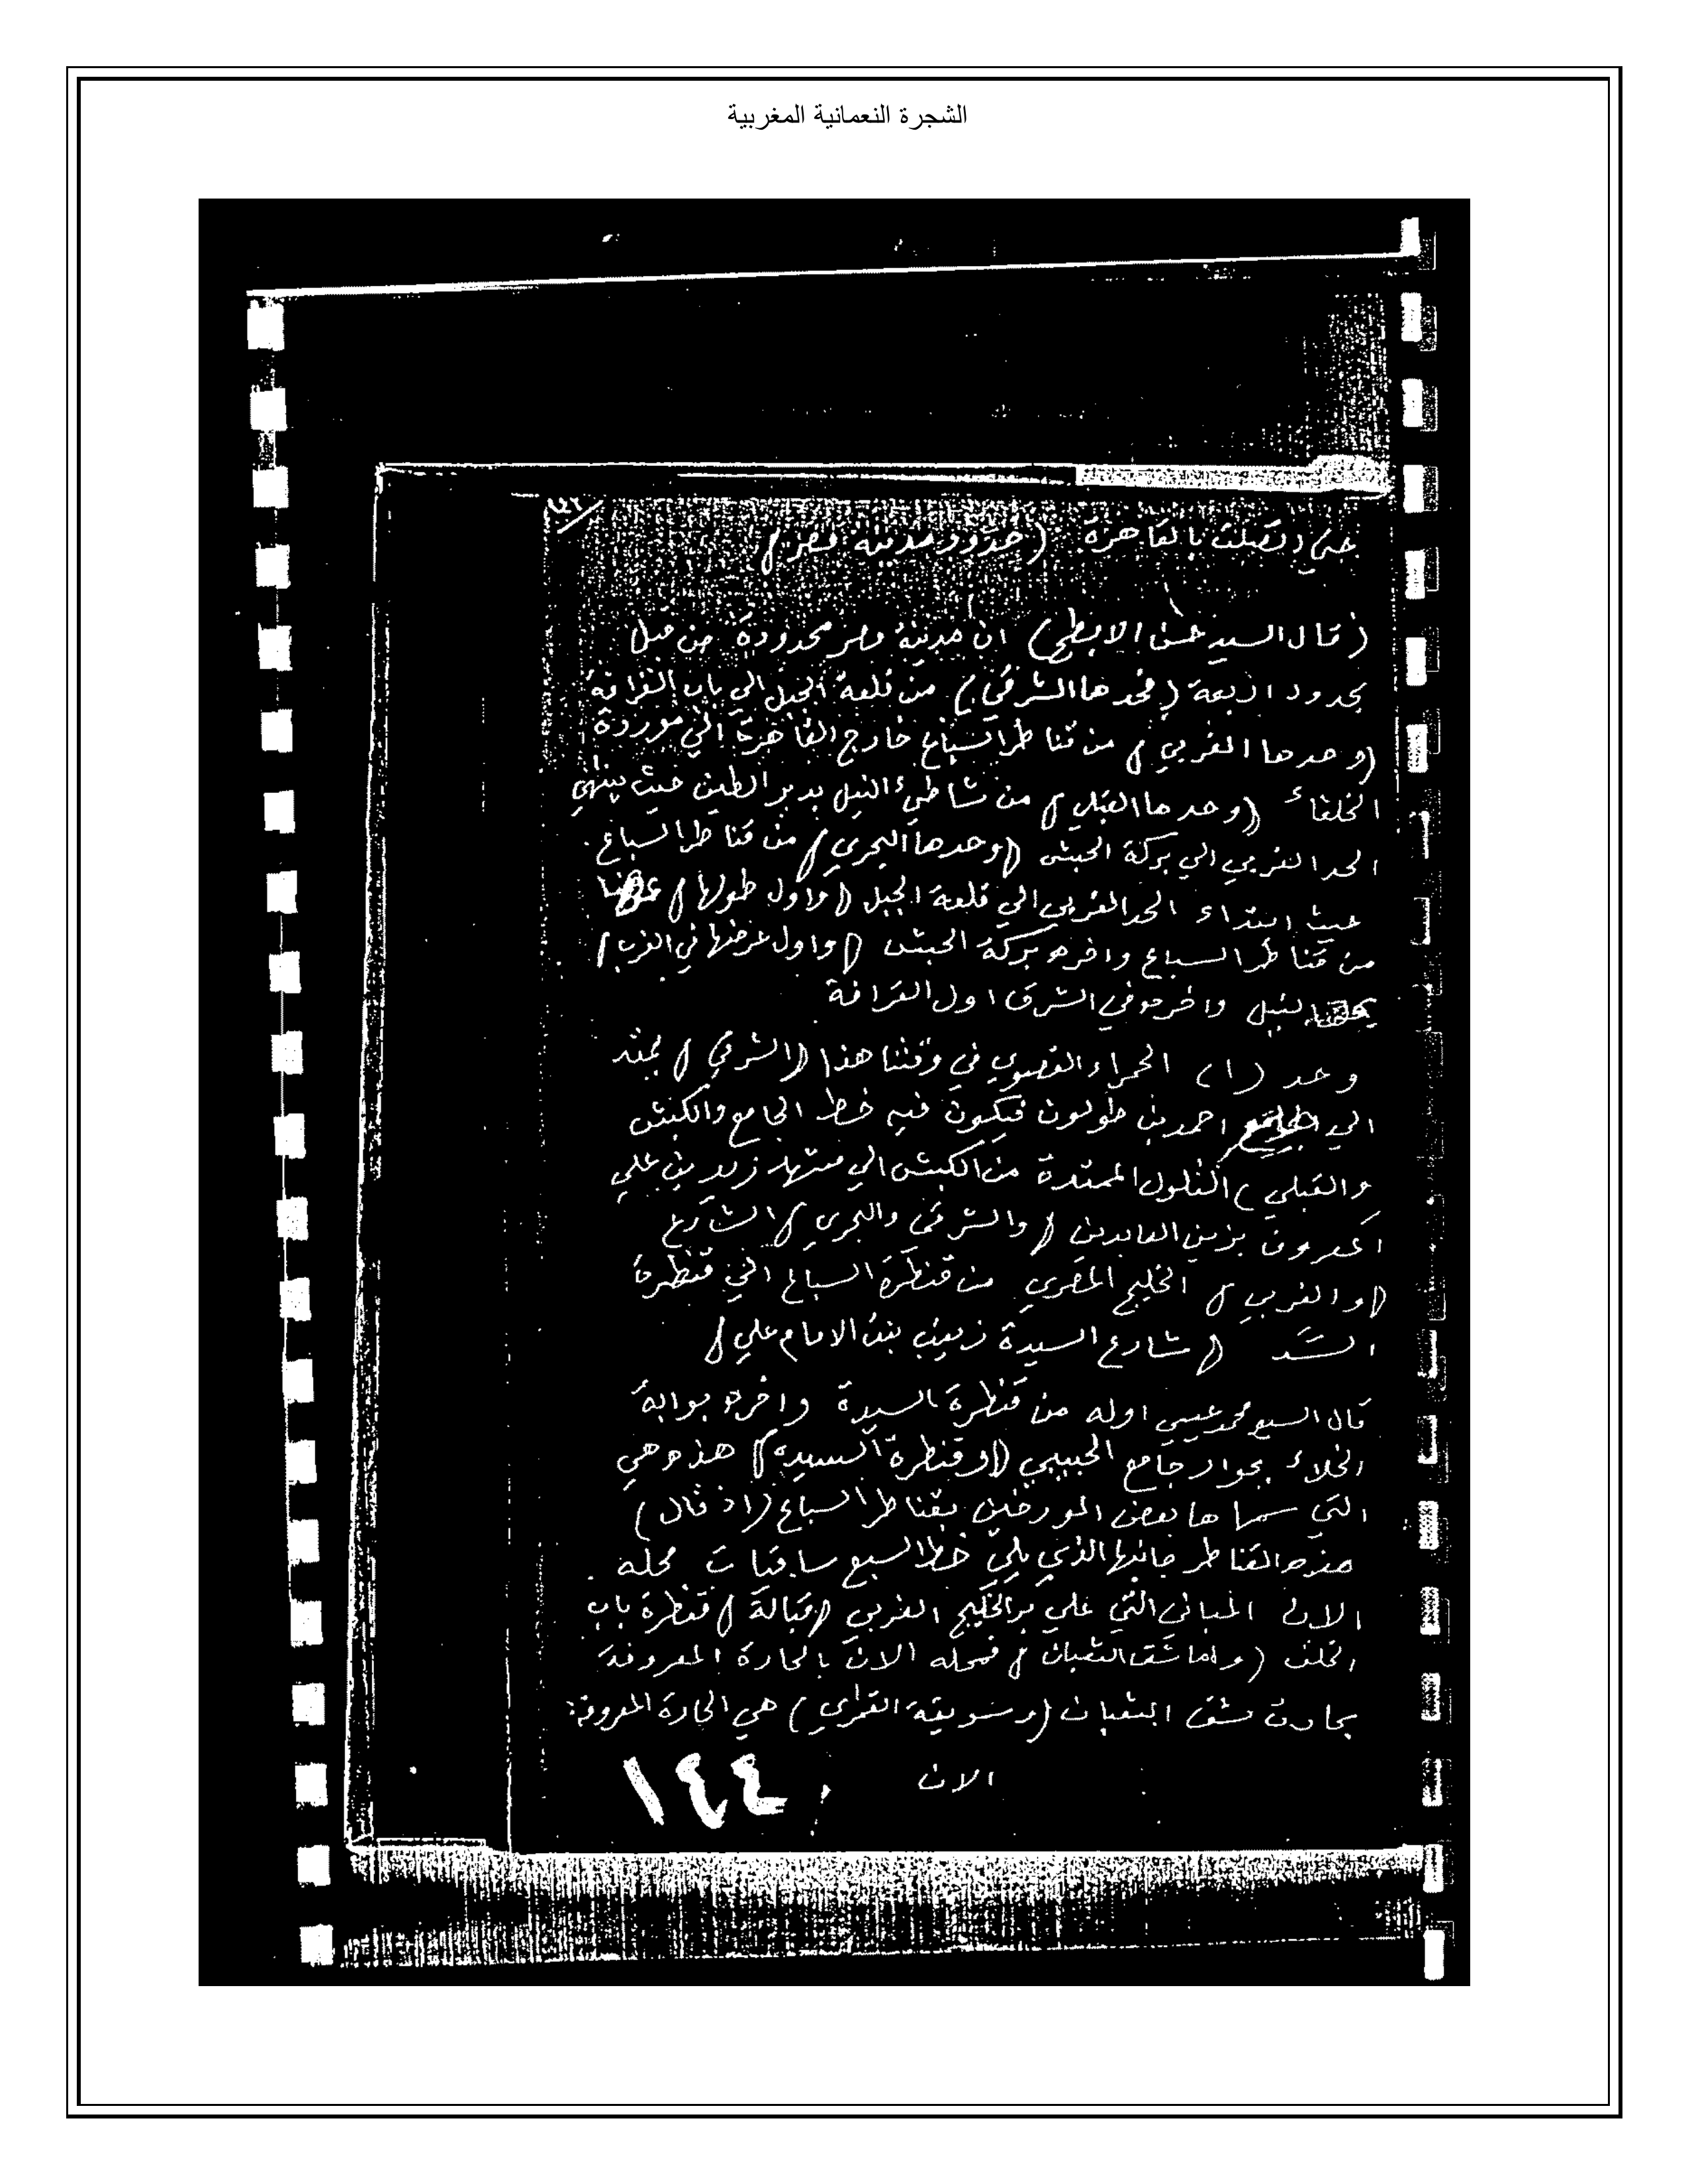 الشجرة النعمانية المغربية
حتى اتصلت بالقاهرة (حدود مدينة مصر)
(قال السيد حسن الابطحي) ان مدينة مصر محدودة من قبل
بحدود اربعة (فحدها الشرقي) من قلعة الجبل الي باب القرافة
(وحدها الغربي) من قناطر السباع خارج القاهرة الي موردة
الخلفاء (وحدها القبلي) من شاطيء النيل بدير الطين حيث ينتهي
الحد الغربي الي بركة الحبش (وحدها البحري) من قناطر السباع
حيث ابتداء الحد الغربي الي قلعة الجبل (واول طولها)
من قناطر السباع واخره بركة الحبش (واول عرضها في الغرب)
النيل واخره في الشرق اول القرافة
وحد (١) الحمراء القصوي في وقتنا هذا (الشرقي) يمتد
الي احمد بن طولون فيكون فيه خط الجامع والكبش
والقبلي) التلول الممتدة من الكبش الي مشهد زيد بن علي
المعروف بزين العابدين (والشرقي والبحري) الشارع
(والغربي) الخليج المصري من قنطرة السباع الي قنطرة
السد (شارع السيدة زينب بنت الامام علي)
قال السيد محمد عيسي اوله من قنطرة السيدة واخره بوابة
الخلاء بجوار جامع الحبيبي (وقنطرة السيدة) هذه هي
التي سماها بعض المورخين بقناطر السباع (اذ قال)
هذه القناطر جانبها الذي يلي خط السبع ساقيات محله
الان المباني التي علي بر الخليج الغربي (قبالة) قنطرة باب
الخلق (واما شق الثعبان) فمحله الان بالحارة المعروفة
بحارت شق الثعبان (وسويقة القمري) هي الحارة المعروفة
الان
١٤٤